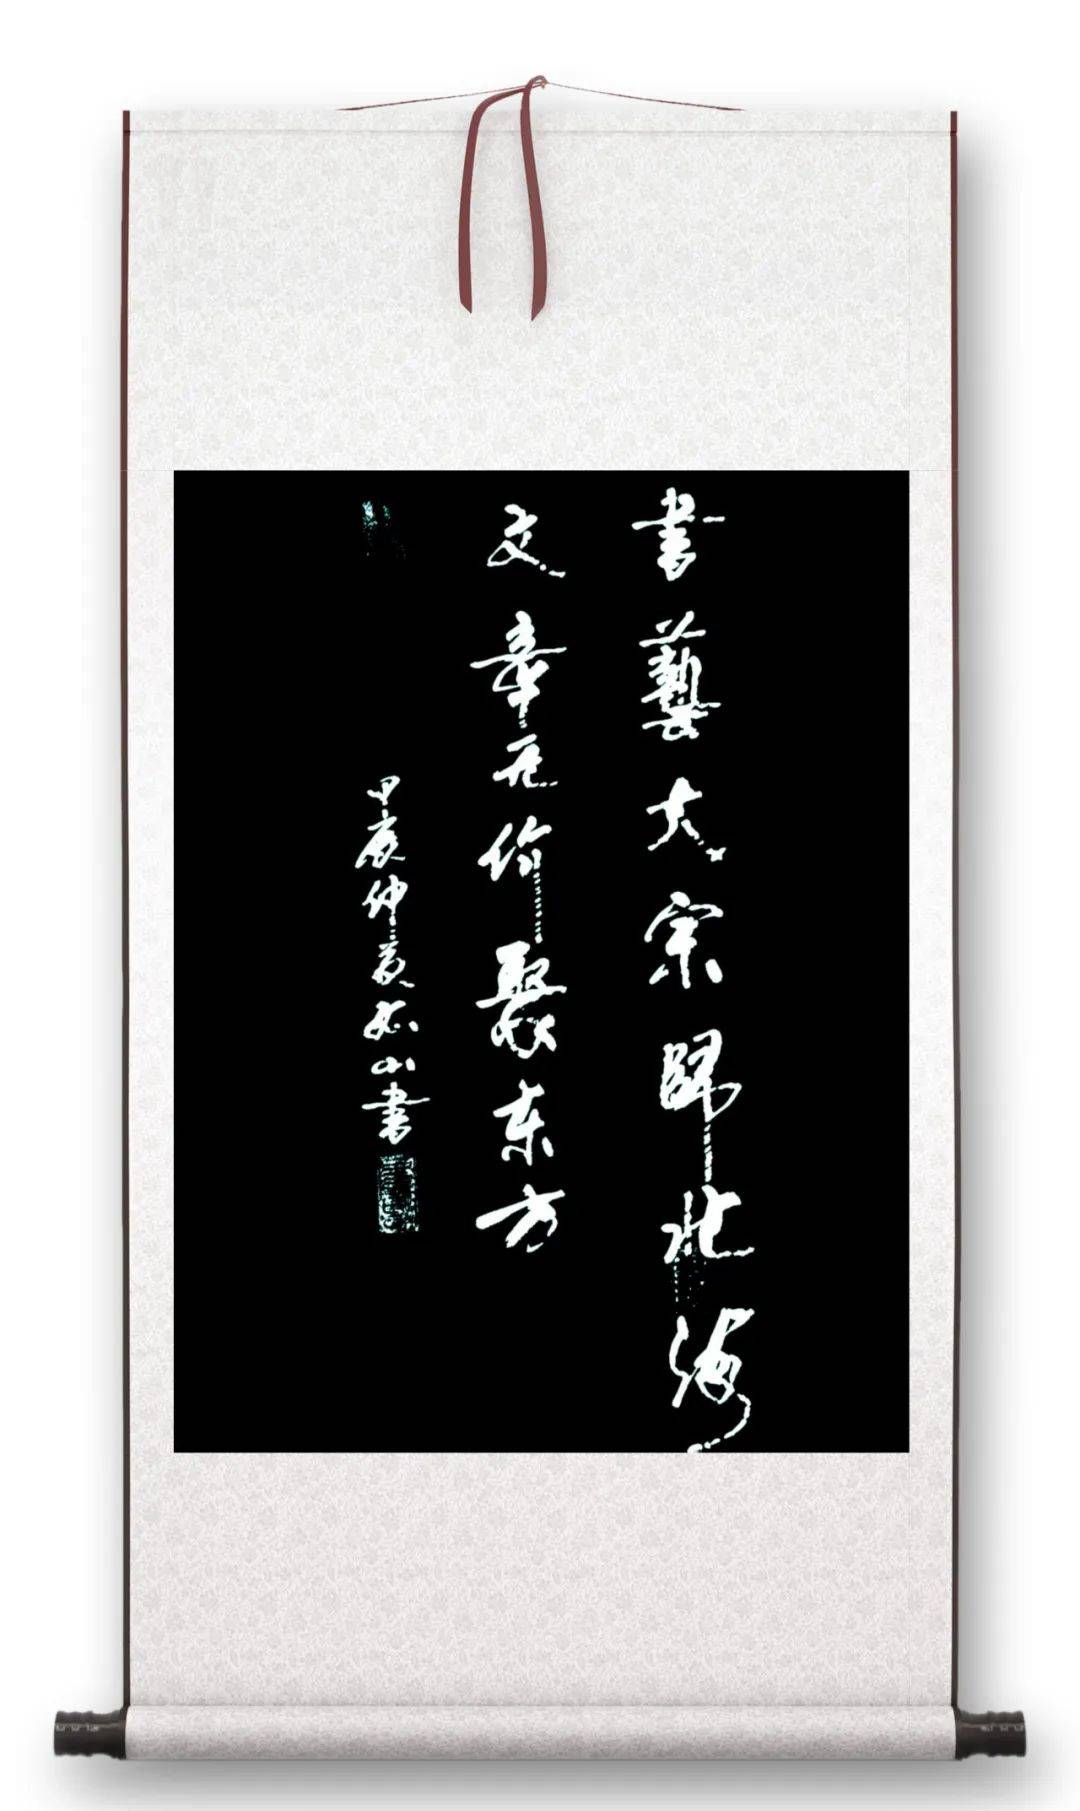 書藝大宗歸北海
文章无价聚东方
甲辰仲夏書